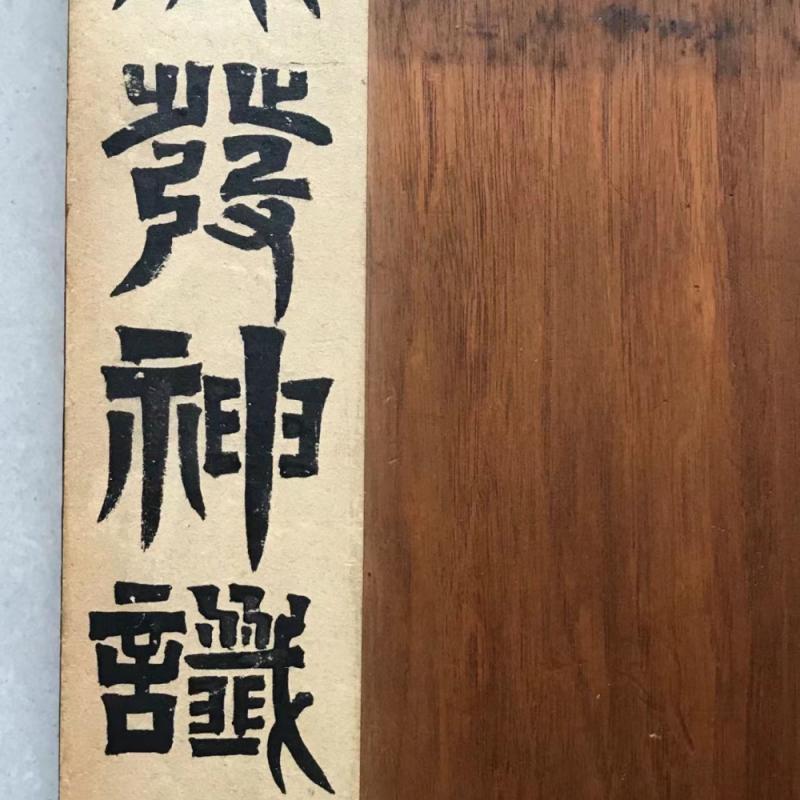 發神讖